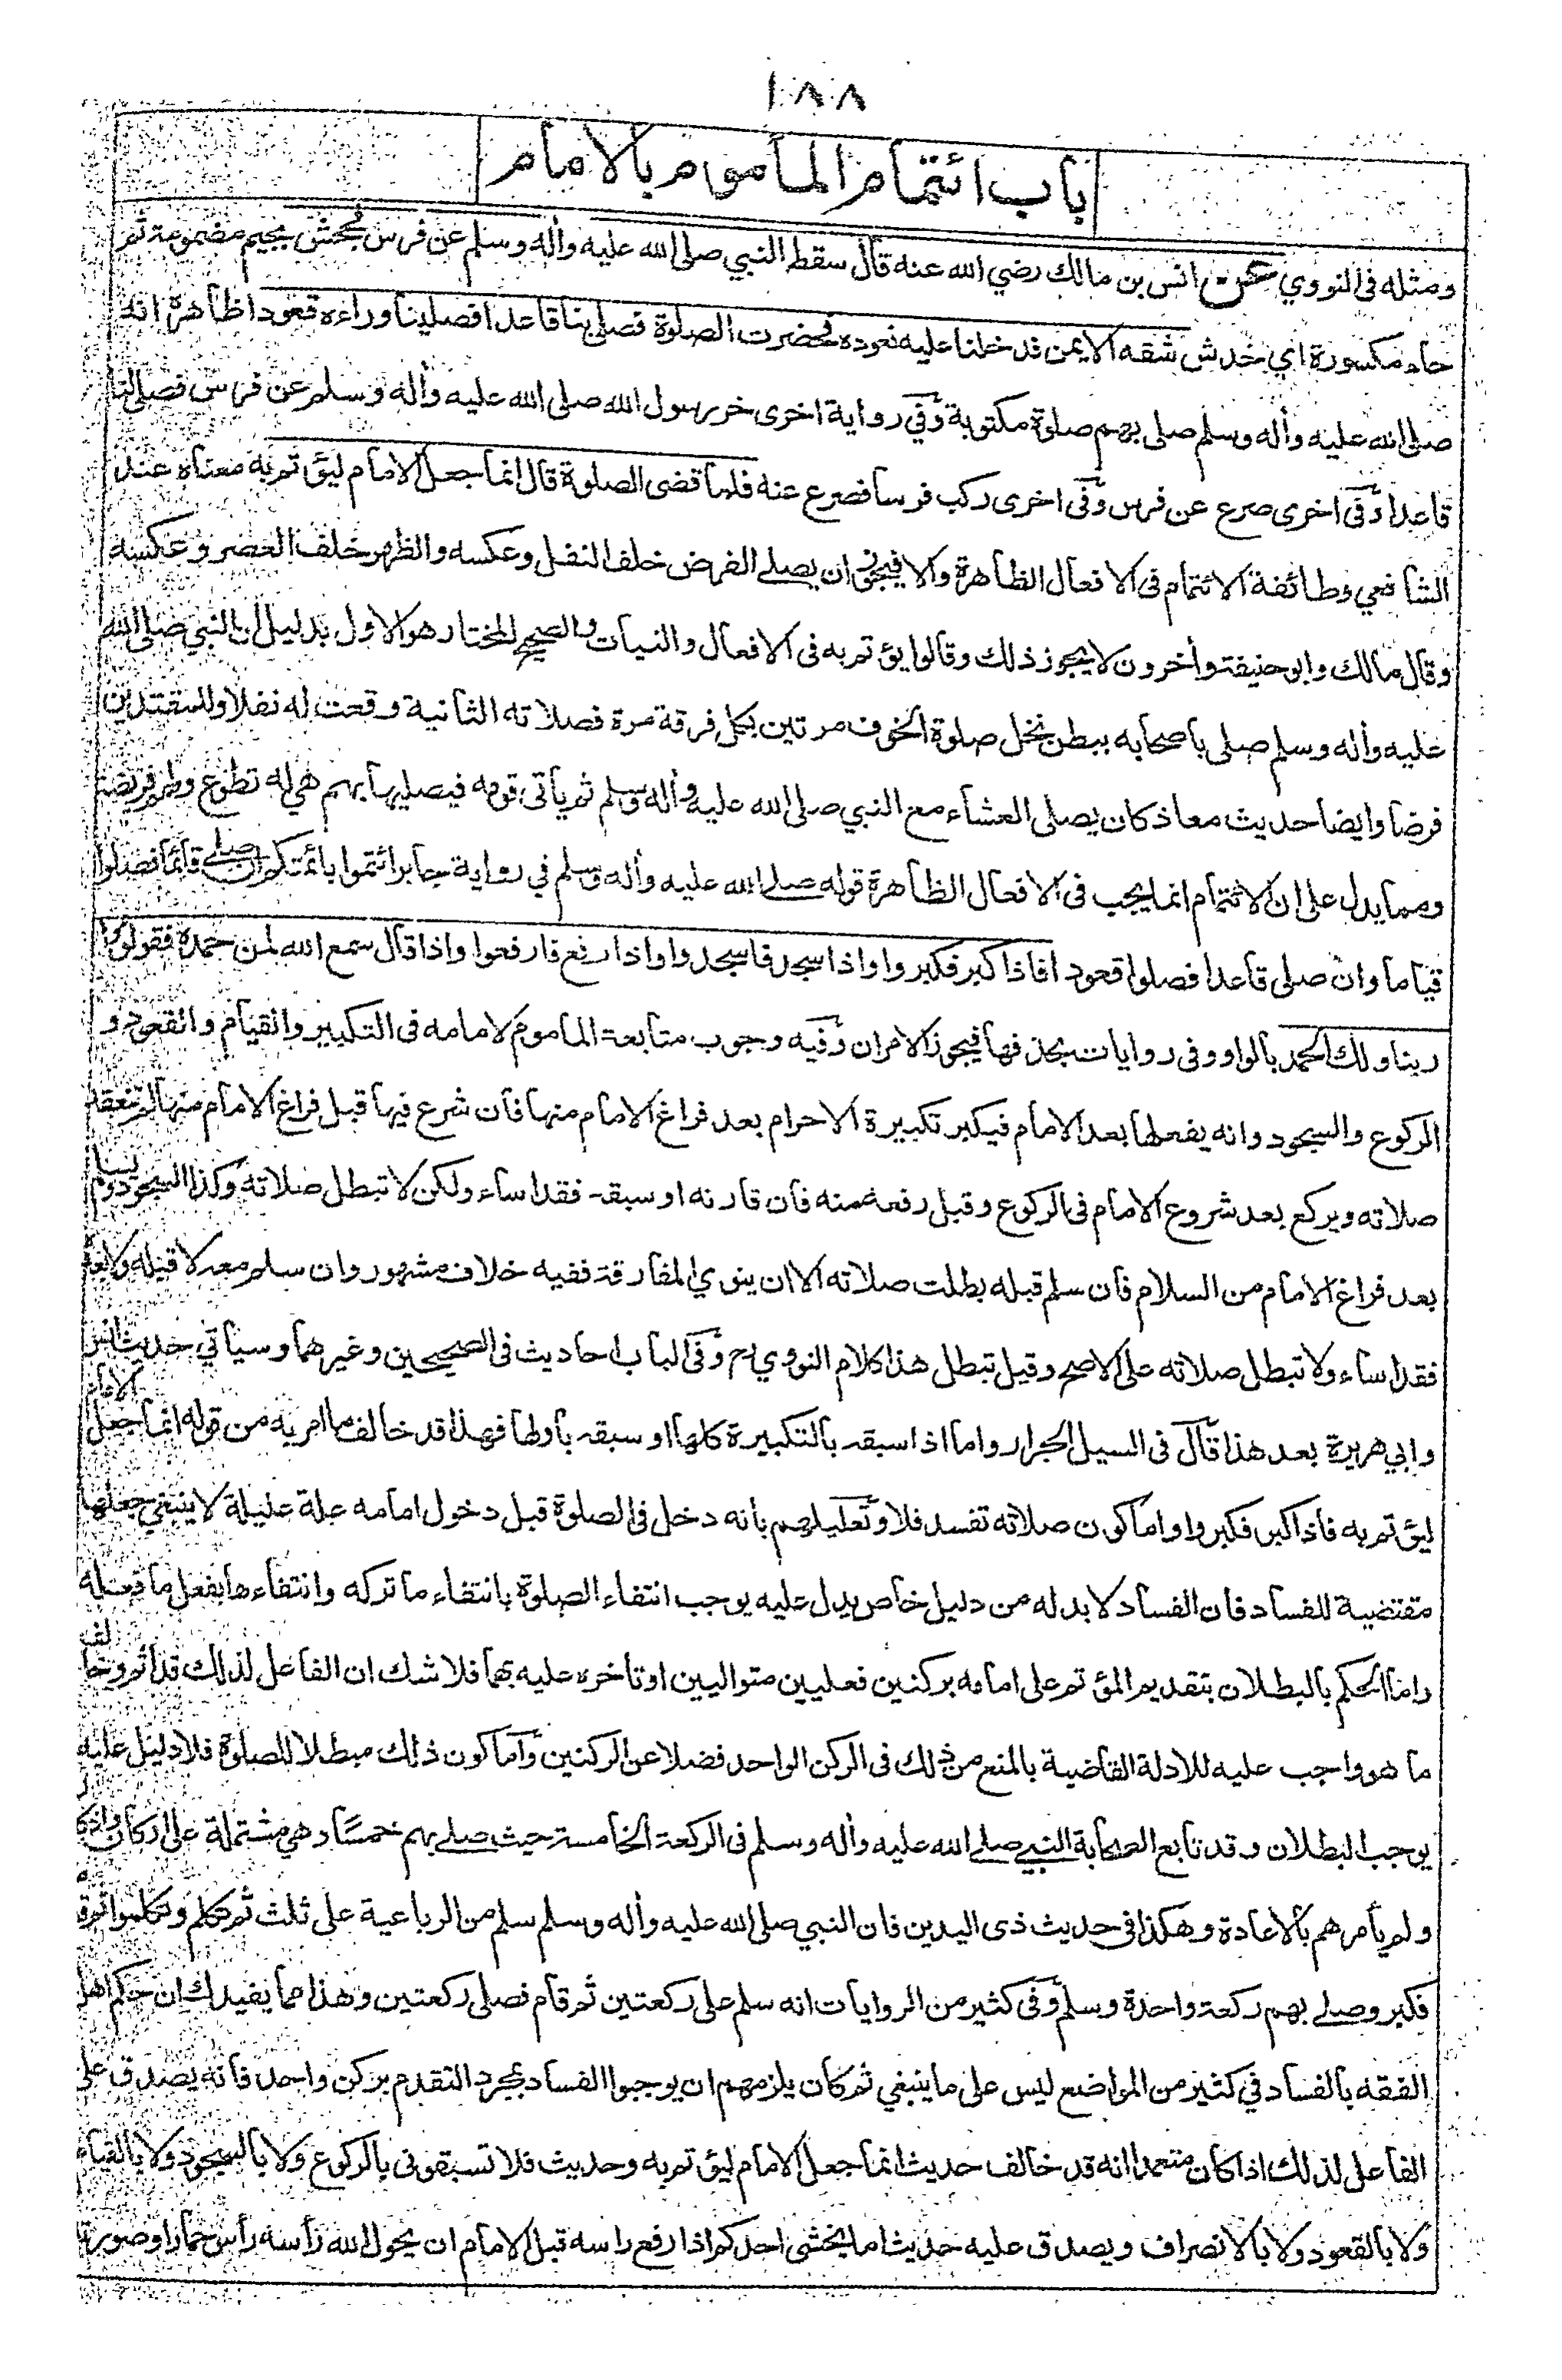 ١٨٨
باب ائتمام المأموم بالامام
ومثله فى النووي عن انس بن مالك رضي الله عنه قال سقط النبي صلى الله عليه وأله وسلم عن فرس فجحش بجيم مضمومة ثم
حاء مكسورة اي خدش شقه الايمن فدخلنا عليه نعوده فحضرت الصلوة فصلى بنا قاعدا فصلينا وراءه قعودا ظاهرة انه
صلى الله عليه وأله وسلم صلى بهم صلوة مكتوبة وفي رواية اخرى خر رسول الله صلى الله عليه وأله وسلم عن فرس فصلى لنا
قاعدا وفى اخرى صرع عن فرس وفى اخرى ركب فرسا فصرع عنه فلما قضى الصلوة قال انما جعل الامام ليؤتم به معناه عند
الشافعي وطائفة الائتمام فى الافعال الظاهرة والا فيجوز ان يصلے الفرض خلف النفل وعكسه والظهر خلف العصر وعكسه
وقال مالك وابو حنيفة وأخرون لا يجوز ذلك وقالوا يؤتم به فى الافعال والنيات والصحيح المختار هو الاول بدليل ان النبي صلى الله
عليه وأله وسلم صلى باصحابه ببطن نخل صلوة الخوف مرتين بكل فرقة مرة فصلاته الثانية وقعت له نفلا وللمقتدين
فرضا وايضا حديث معاذ كان يصلى العشاء مع النبي صلى الله عليه وأله وسلم ثم يأتى قومه فيصليها بهم هي له تطوع ولهم فريضة
ومما يدل على ان الائتمام انما يجب فى الافعال الظاهرة قوله صلے الله عليه وأله وسلم في رواية جابر ائتموا بائمتكم ان صلے قائما فصلوا
قياما وان صلى قاعدا فصلوا قعودا فاذا كبر فكبروا واذا سجد فاسجدوا واذا رفع فارفعوا واذا قال سمع الله لمن حمده فقولوا
ربنا ولك الحمد بالواو وفى روايات بحذفها فيجوز الامران وفيه وجوب متابعة الماموم لامامه فى التكبير والقيام والقعود و
الركوع والسجود وانه يفعلها بعد الامام فيكبر تكبيرة الاحرام بعد فراغ الامام منها فان شرع فيها قبل فراغ الامام منها لم تنعقد
صلاته ويركع بعد شروع الامام فى الركوع وقبل رفعه منه فان قارنه او سبقه فقد اساء ولكن لا تبطل صلاته وكذا السجود ويسلم
بعد فراغ الامام من السلام فان سلم قبله بطلت صلاته الا ان ينوي المفارقة ففيه خلاف مشهور وان سلم معه لا قبله ولا بعده
فقد اساء ولا تبطل صلاته على الاصح وقيل تبطل هذا كلام النووي رح وفى الباب احاديث فى الصحيحين وغيرهما وسيأتي حديث انس
وابي هريرة بعد هذا قال فى السيل الجرار واما اذا سبقه بالتكبيرة كلها او سبقه باولها فهذا قد خالف ما امر به من قوله انما جعل الامام
ليؤتم به فاذا كبر فكبروا واما كون صلاته تفسد فلا وتعليلهم بانه دخل فى الصلوة قبل دخول امامه علة عليلة لا ينبغي جعلها
مقتضية للفساد فان الفساد لا بد له من دليل خاص يدل عليه يوجب انتفاء الصلوة بانتفاء ما تركه وانتفاءها بفعل ما فعله
واما الحكم بالبطلان بتقديم المؤتم على امامه بركنين فعليين متواليين او تأخره عليه بهما فلا شك ان الفاعل لذلك قد اثم وخالف
ما هو واجب عليه للادلة القاضية بالمنع من ذلك فى الركن الواحد فضلا عن الركنين واما كون ذلك مبطلا للصلوة فلا دليل عليه
يوجب البطلان وقد تابع الصحابة النبي صلے الله عليه وأله وسلم فى الركعة الخامسة حيث صلے بهم خمسا وهي مشتملة على اركان واذكار
ولم يأمرهم بالاعادة وهكذا فى حديث ذى اليدين فان النبي صلى الله عليه وأله وسلم سلم من الرباعية على ثلث ثم تكلم وتكلموا ثم قام
فكبر وصلے بهم ركعة واحدة وسلم وفى كثير من الروايات انه سلم على ركعتين ثم قام فصلى ركعتين وهذا مما يفيدك ان حكم اهل
الفقه بالفساد في كثير من المواضع ليس على ما ينبغي ثم كان يلزمهم ان يوجبوا الفساد بمجرد التقدم بركن واحد فانه يصدق على
الفاعل لذلك اذا كان متعمدا انه قد خالف حديث انما جعل الامام ليؤتم به وحديث فلا تسبقونى بالركوع ولا بالسجود ولا بالقيام
ولا بالقعود ولا بالانصراف ويصدق عليه حديث اما يخشى احدكم اذا رفع راسه قبل الامام ان يحول الله رأسه رأس حمار او صورة